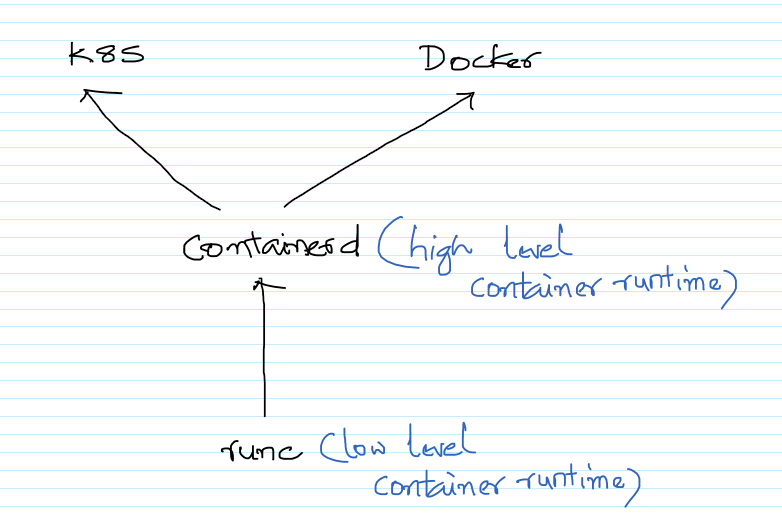 K8S
Docker
containerd (high level
container runtime)
runc (low level
container runtime)